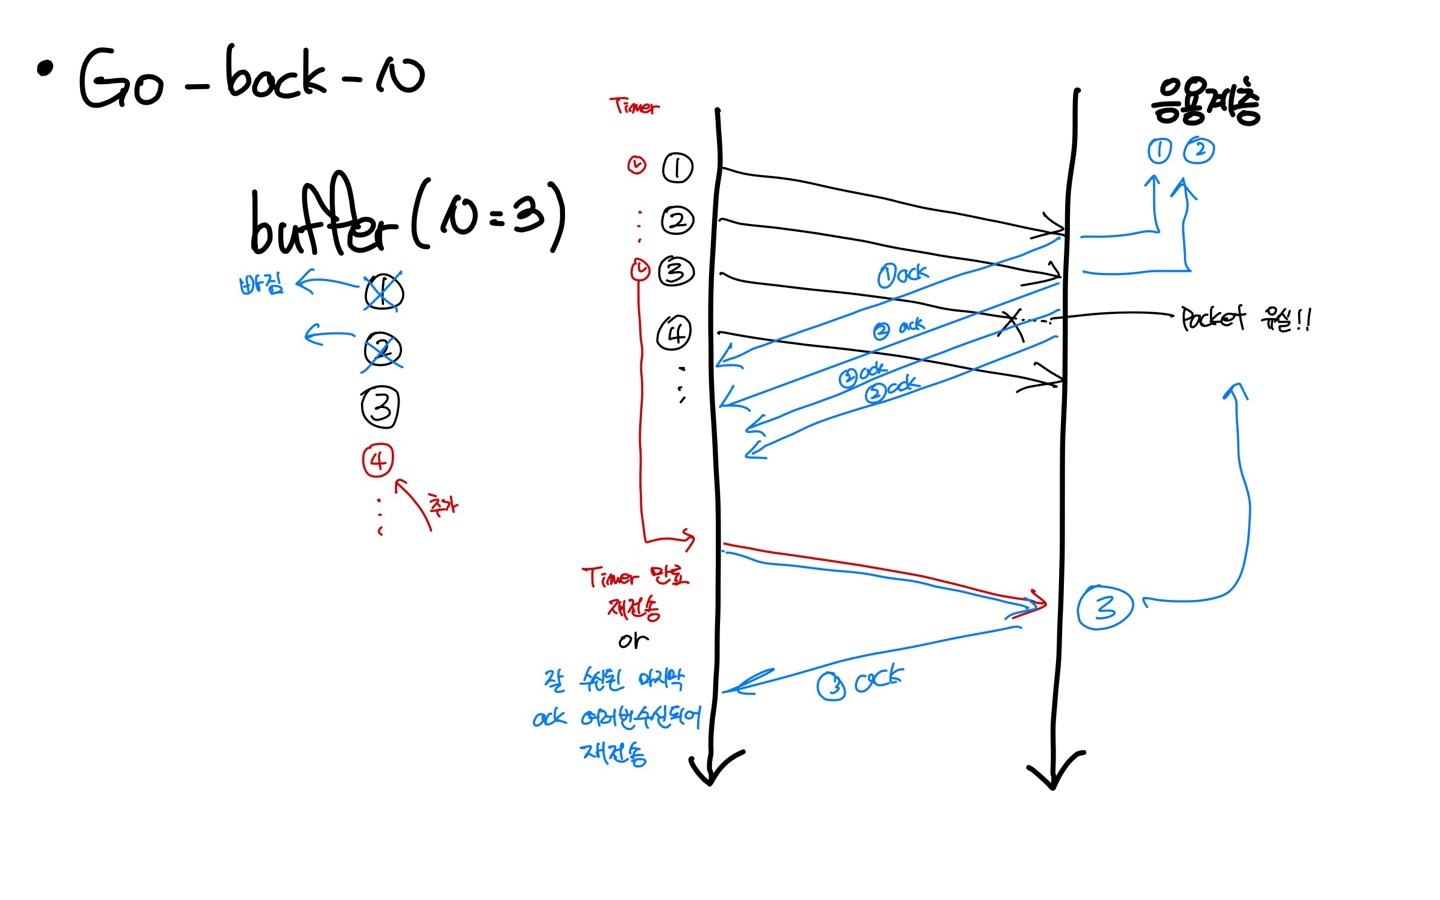 • Go-back-N
buffer(N=3)
빠짐
①
②
③
④
⋮
추가
Timer
①
②
③
④
⋮
① ack
② ack
② ack
② ack
응용계층
① ②
Packet 유실!!
Timer 만료
재전송
or
잘 수신된 마지막
ack 여러번수신되어
재전송
③
③ ack